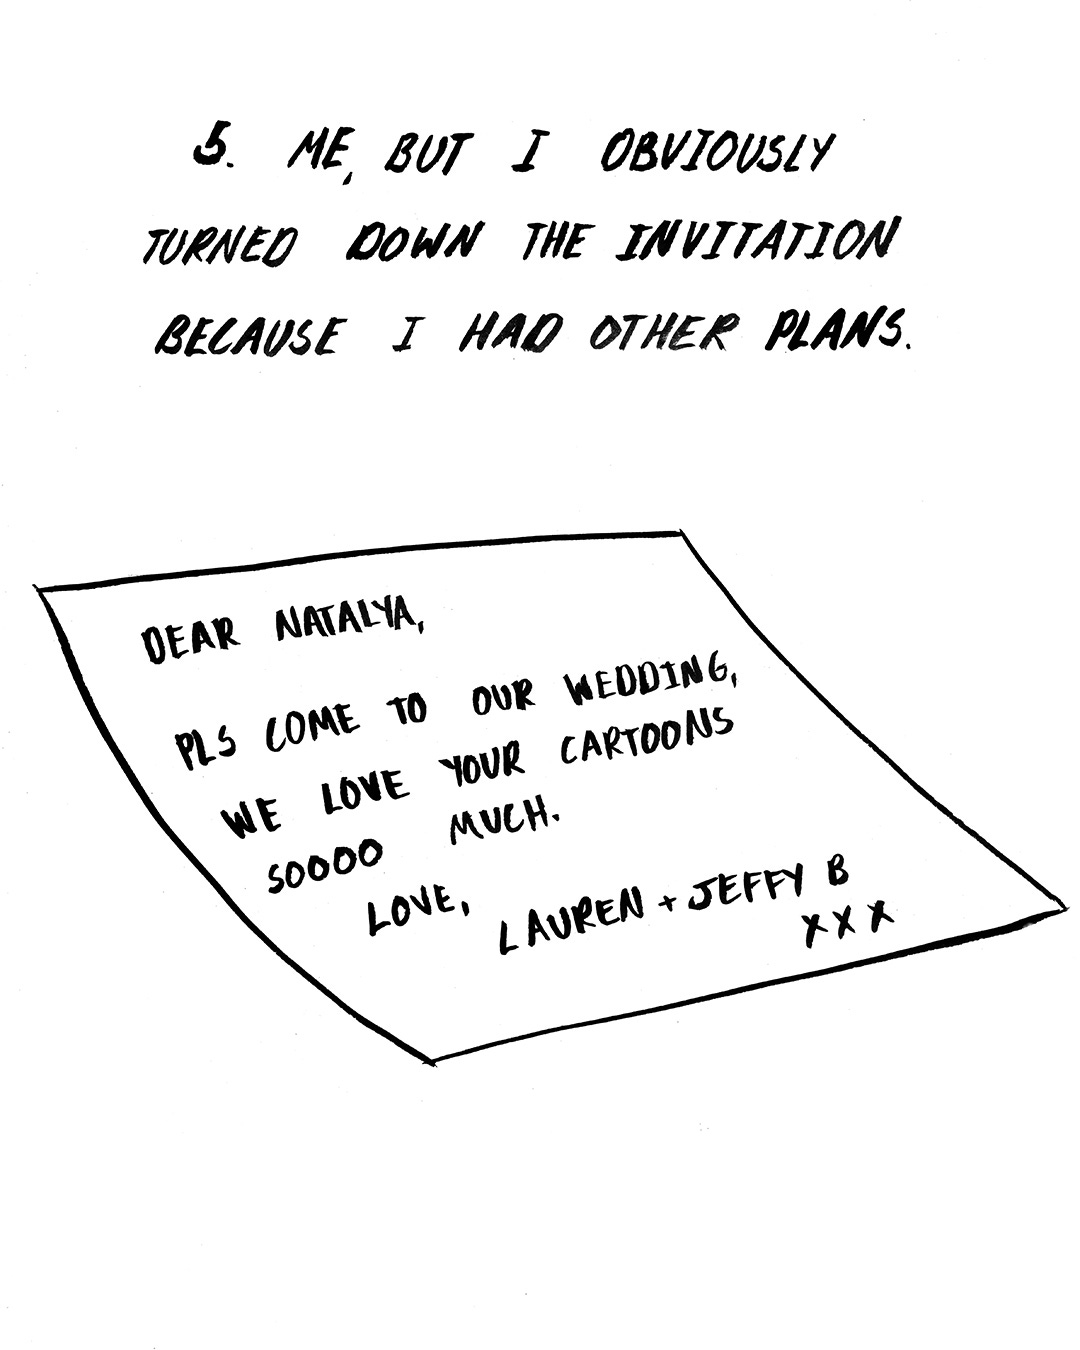 5. ME, BUT I OBVIOUSLY
TURNED DOWN THE INVITATION
BECAUSE I HAD OTHER PLANS.
DEAR NATALYA,
PLS COME TO OUR WEDDING,
WE LOVE YOUR CARTOONS
SOOOO MUCH.
LOVE,
LAUREN + JEFFY B
XXX